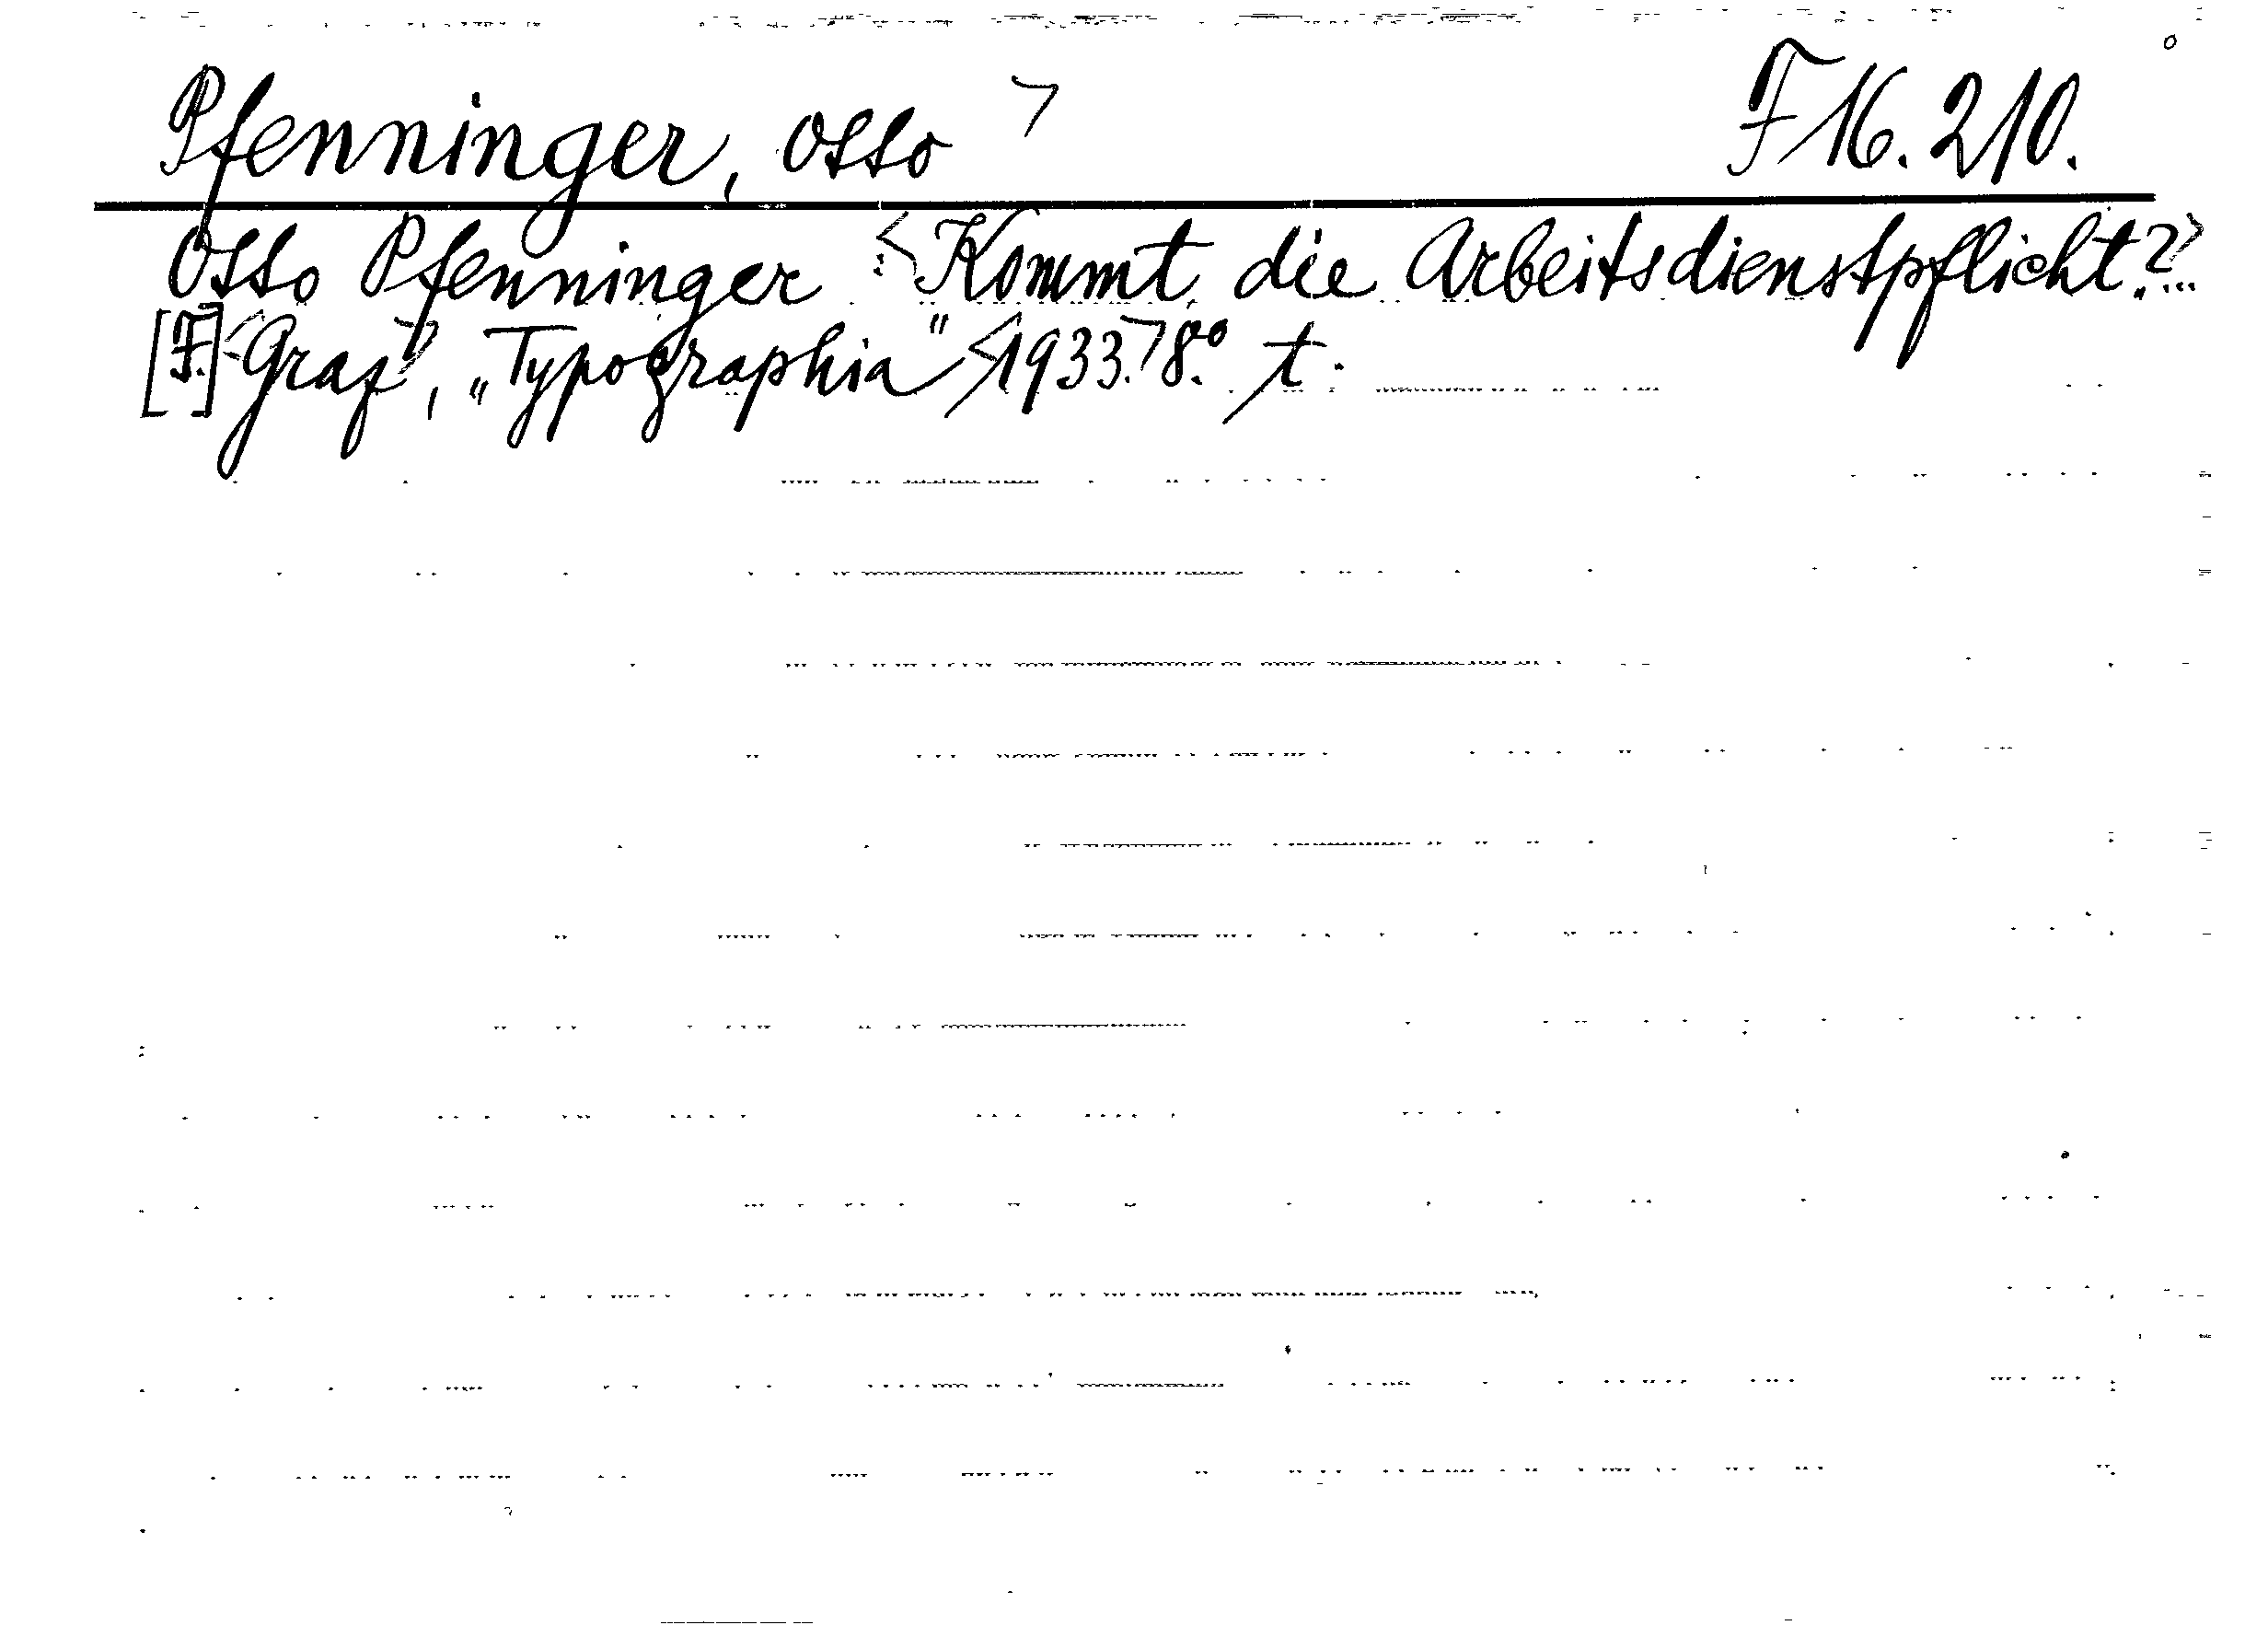 Pfenninger, Otto > F 16. 210.
Otto Pfenninger : <Kommt die Arbeitsdienstpflicht?>...
[F.] <Graf>, „Typographia" <1933.> 8.° t.